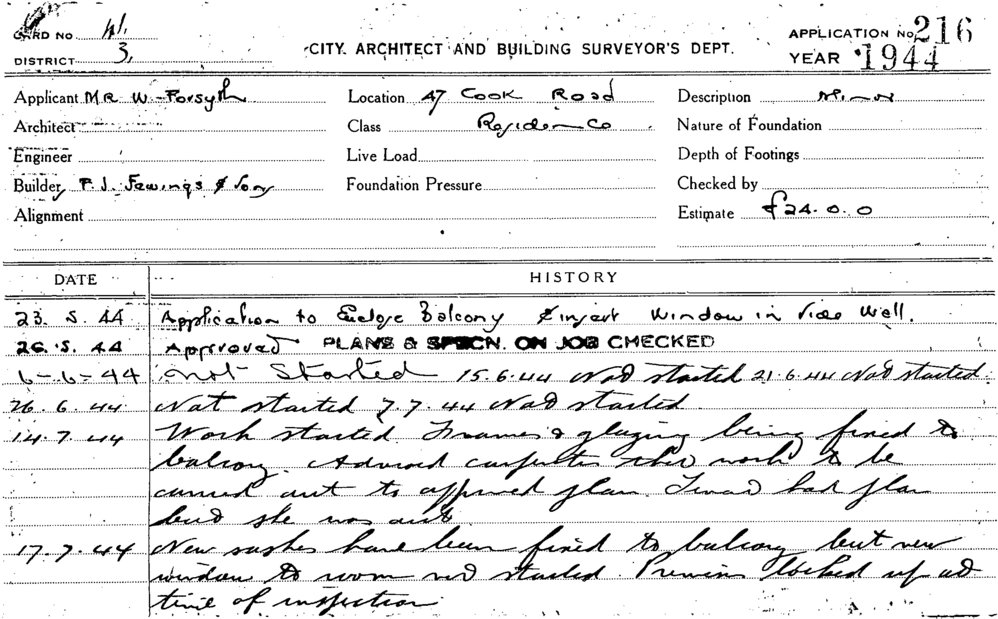 CARD NO
DISTRICT 3.
CITY. ARCHITECT AND BUILDING SURVEYOR'S DEPT.
APPLICATION No. 216
YEAR 1944
Applicant Mr W. Forsyth
Location 47 Cook Road
Description Minor
Architect
Class Residence
Nature of Foundation
Engineer
Live Load
Depth of Footings
Builder P. J. Jewings & Sons
Foundation Pressure
Checked by
Alignment
Estimate £24.0.0
DATE HISTORY
23. 5. 44 Application to Enclose Balcony & insert Window in side Wall.
26. 5. 44 Approved PLANS & SPECN. ON JOB CHECKED
6-6-44 Not Started 15.6.44 Not started 21.6.44 Not started
26. 6. 44 Not started 7.7.44 Not started
14. 7. 44 Work started. Frames & glazing being fixed to
balcony. Advised carpenter work to be
carried out to approved plan. Tenant had plan
but she was out
17. 7. 44 New sashes have been fixed to balcony but new
window to room not started. Premises locked up at
time of inspection